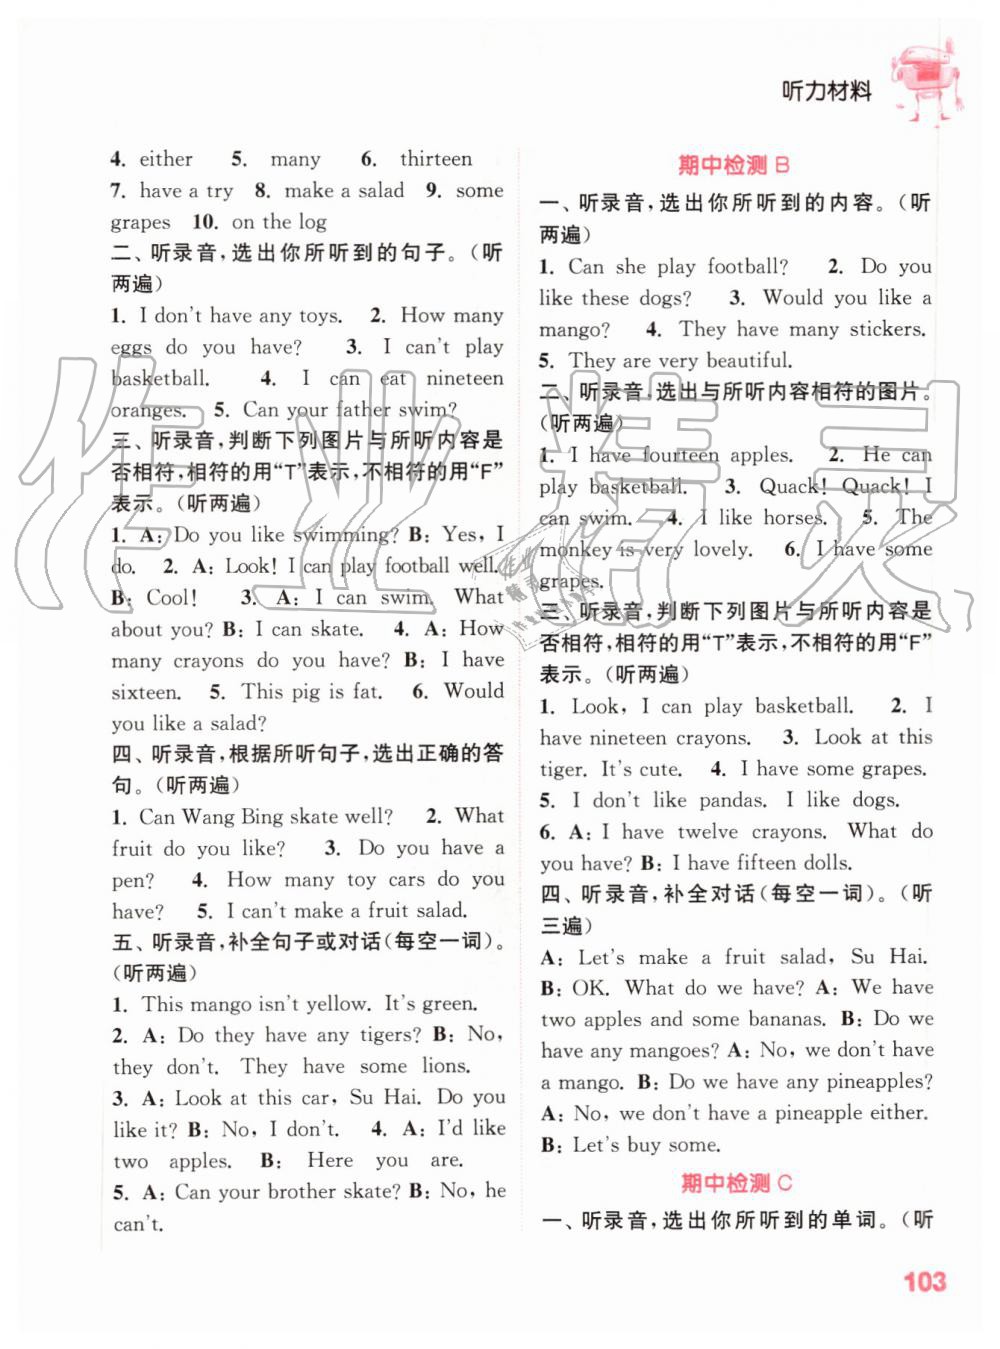 听力材料
4. either 5. many 6. thirteen
7. have a try 8. make a salad 9. some
grapes 10. on the log
二、听录音,选出你所听到的句子。(听
两遍)
1. I don't have any toys. 2. How many
eggs do you have? 3. I can't play
basketball. 4. I can eat nineteen
oranges. 5. Can your father swim?
三、听录音,判断下列图片与所听内容是
否相符,相符的用“T”表示,不相符的用“F”
表示。(听两遍)
1. A: Do you like swimming? B: Yes, I
do. 2. A: Look! I can play football well.
B: Cool! 3. A: I can swim. What
about you? B: I can skate. 4. A: How
many crayons do you have? B: I have
sixteen. 5. This pig is fat. 6. Would
you like a salad?
四、听录音,根据所听句子,选出正确的答
句。(听两遍)
1. Can Wang Bing skate well? 2. What
fruit do you like? 3. Do you have a
pen? 4. How many toy cars do you
have? 5. I can't make a fruit salad.
五、听录音,补全句子或对话(每空一词)。
(听两遍)
1. This mango isn't yellow. It's green.
2. A: Do they have any tigers? B: No,
they don't. They have some lions.
3. A: Look at this car, Su Hai. Do you
like it? B: No, I don't. 4. A: I'd like
two apples. B: Here you are.
5. A: Can your brother skate? B: No, he
can't.
期中检测 B
一、听录音,选出你所听到的内容。(听
两遍)
1. Can she play football? 2. Do you
like these dogs? 3. Would you like a
mango? 4. They have many stickers.
5. They are very beautiful.
二、听录音,选出与所听内容相符的图片。
(听两遍)
1. I have fourteen apples. 2. He can
play basketball. 3. Quack! Quack! I
can swim. 4. I like horses. 5. The
monkey is very lovely. 6. I have some
grapes.
三、听录音,判断下列图片与所听内容是
否相符,相符的用“T”表示,不相符的用“F”
表示。(听两遍)
1. Look, I can play basketball. 2. I
have nineteen crayons. 3. Look at this
tiger. It's cute. 4. I have some grapes.
5. I don't like pandas. I like dogs.
6. A: I have twelve crayons. What do
you have? B: I have fifteen dolls.
四、听录音,补全对话(每空一词)。(听
三遍)
A: Let's make a fruit salad, Su Hai.
B: OK. What do we have? A: We have
two apples and some bananas. B: Do we
have any mangoes? A: No, we don't have
a mango. B: Do we have any pineapples?
A: No, we don't have a pineapple either.
B: Let's buy some.
期中检测 C
一、听录音,选出你所听到的单词。(听
103
作业精灵